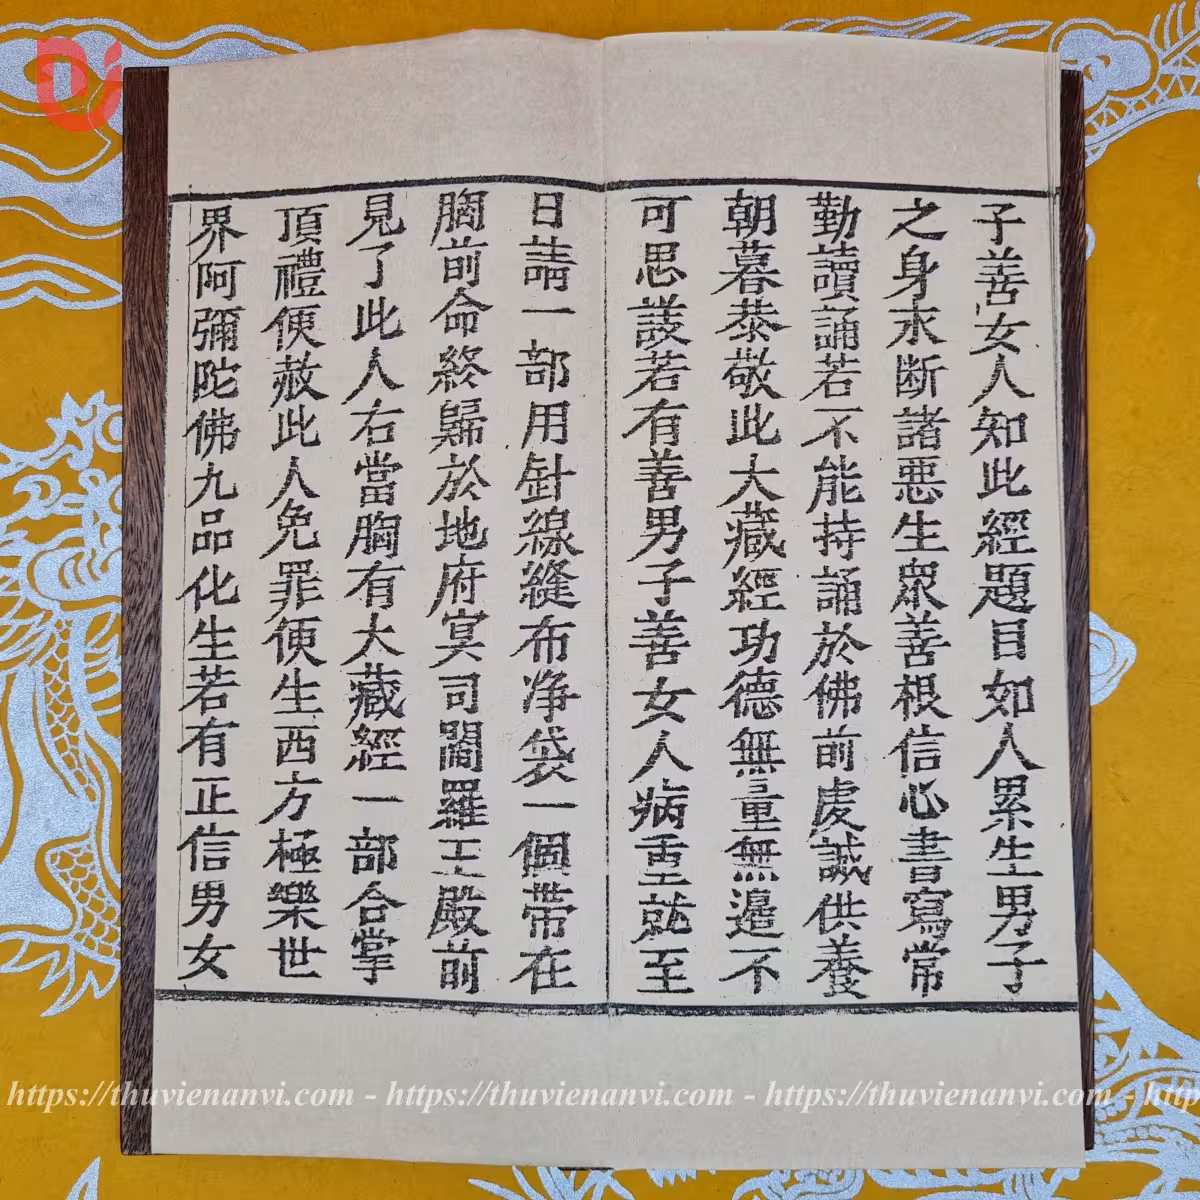 子善女人知此經題目如人累生男子
之身永断諸惡生衆善根信心書寫常
勤讀誦若不能持誦於佛前虔誠供養
朝暮恭敬此大藏經功德無量無邉不
可思議若有善男子善女人病重就至
日請一部用針線縫布净袋一個帶在
胸前命終歸於地府冥司閻羅王殿前
見了此人右當胸有大藏經一部合掌
頂禮便赦此人免罪便生西方極樂世
界阿彌陀佛九品化生若有正信男女
https://thuvienanvi.com - https://thuvienanvi.com - https://thuvienanvi.com - http